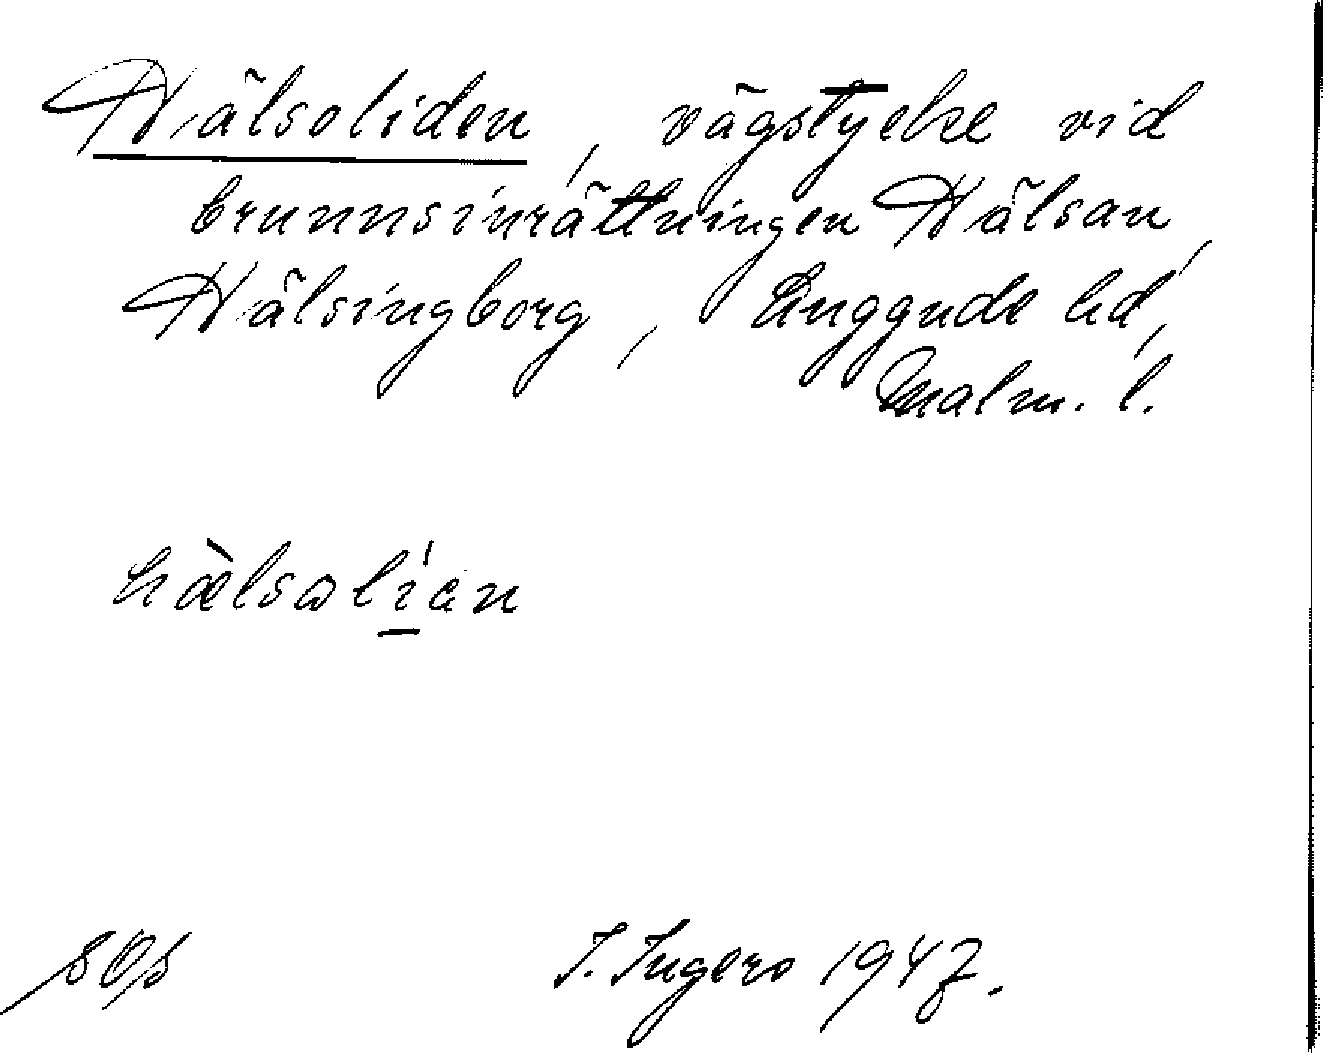 Hälsoliden, vägstycke vid
brunnsinrättningen Hälsan,
Hälsingborg, Luggude hd,
Malm. l.
hæ̀lsωlíən
SOs I. Ingers 1947.